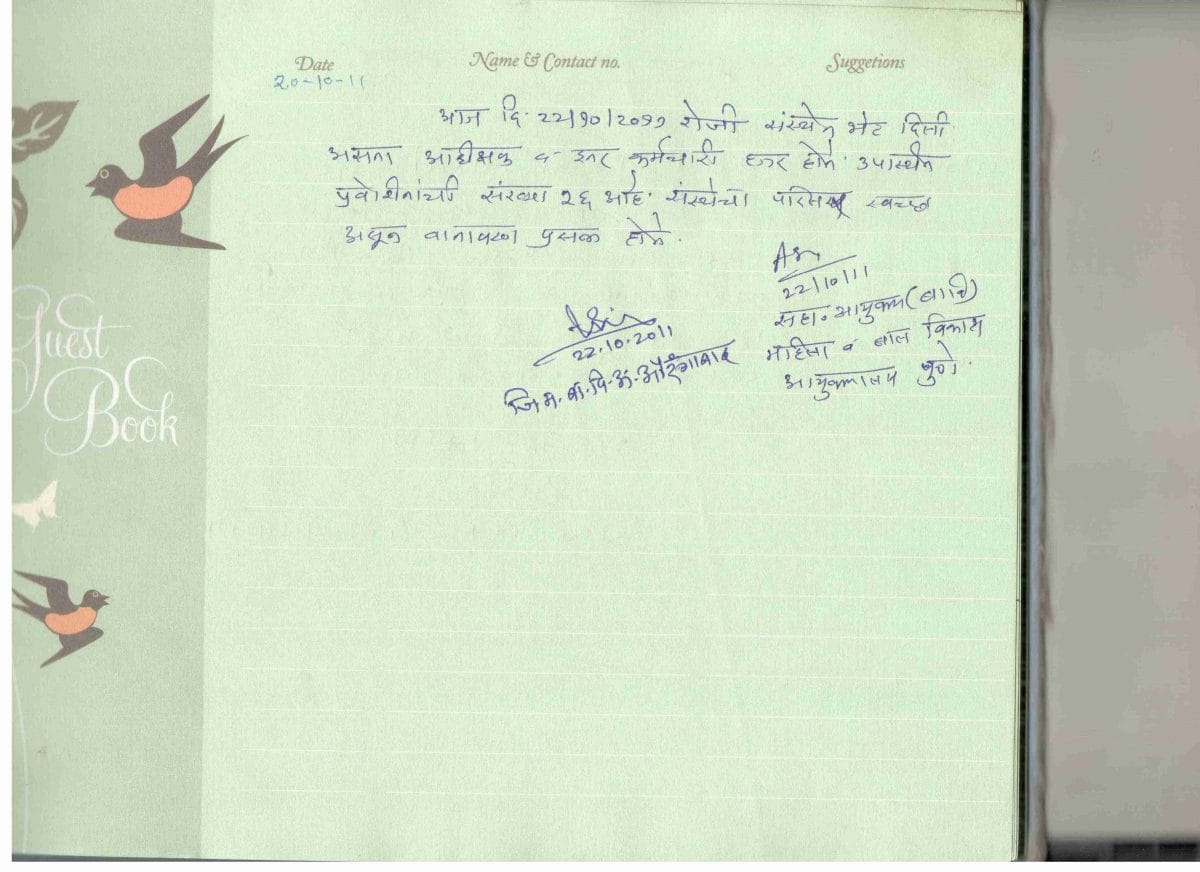 Date Name & Contact no. Suggetions
20-10-11
आज दि. 22/10/2099 रोजी संस्थेत भेट दिली
असता अधिक्षक व इतर कर्मचारी हजर होते. उपास्थित
प्रवेशितांची संख्या २६ आहे. संस्थेचा परिसर स्वच्छ
असून वातावरण प्रसन्न होते.
22/10/11
सहा. आयुक्त (बावि)
महिला व बाल विकास
आयुक्तालय पुणे.
22.10.2011
जि.म.बा.वि.अ. औरंगाबाद
Guest
Book